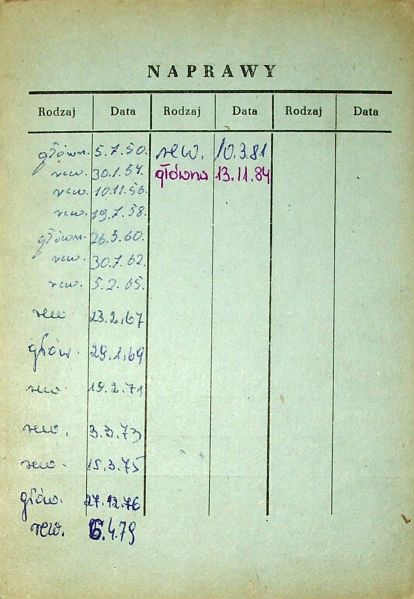 NAPRAWY
Rodzaj Data Rodzaj Data Rodzaj Data
główn. 5.7.50. rew. 10.3.81
rew. 30.1.54. główna 13.11.84
rew. 10.11.56.
rew. 19.7.58.
główn. 26.5.60.
rew. 30.7.62.
rew. 5.2.65.
rew 23.2.67
głów. 29.1.69
rew. 19.2.71
rew. 3.3.73
rew. 15.3.75
głów. 27.12.76
rew. 6.4.79